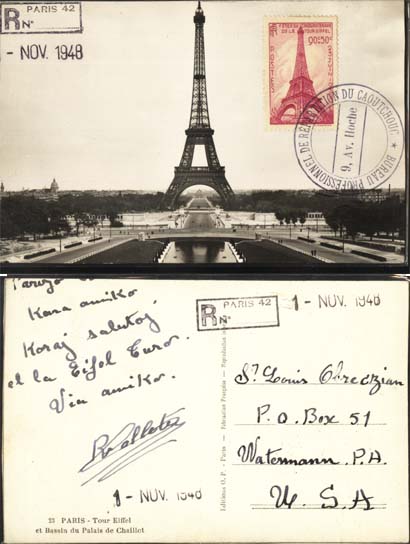 PARIS 42
R N°
- NOV. 1948
1889 FÊTES DU CINQUANTENAIRE 1939
DE LA TOUR EIFFEL
90c+50c
POSTES
BUREAU PROFESSIONNEL DE RÉPARTITION DU CAOUTCHOUC ★
9, Av. Hoche
Parizo
Kara amiko,
Koraj salutoj
el la Eifel Turo.
Via amiko.
1 - NOV. 1948
23 PARIS - Tour Eiffel
et Bassin du Palais de Chaillot
Editions O. P. - Paris - Fabrication Française - Reproduction
PARIS 42
R N°
1 - NOV. 1948
St Louis
P.O. Box 51
Watermann. P.A.
U.S.A